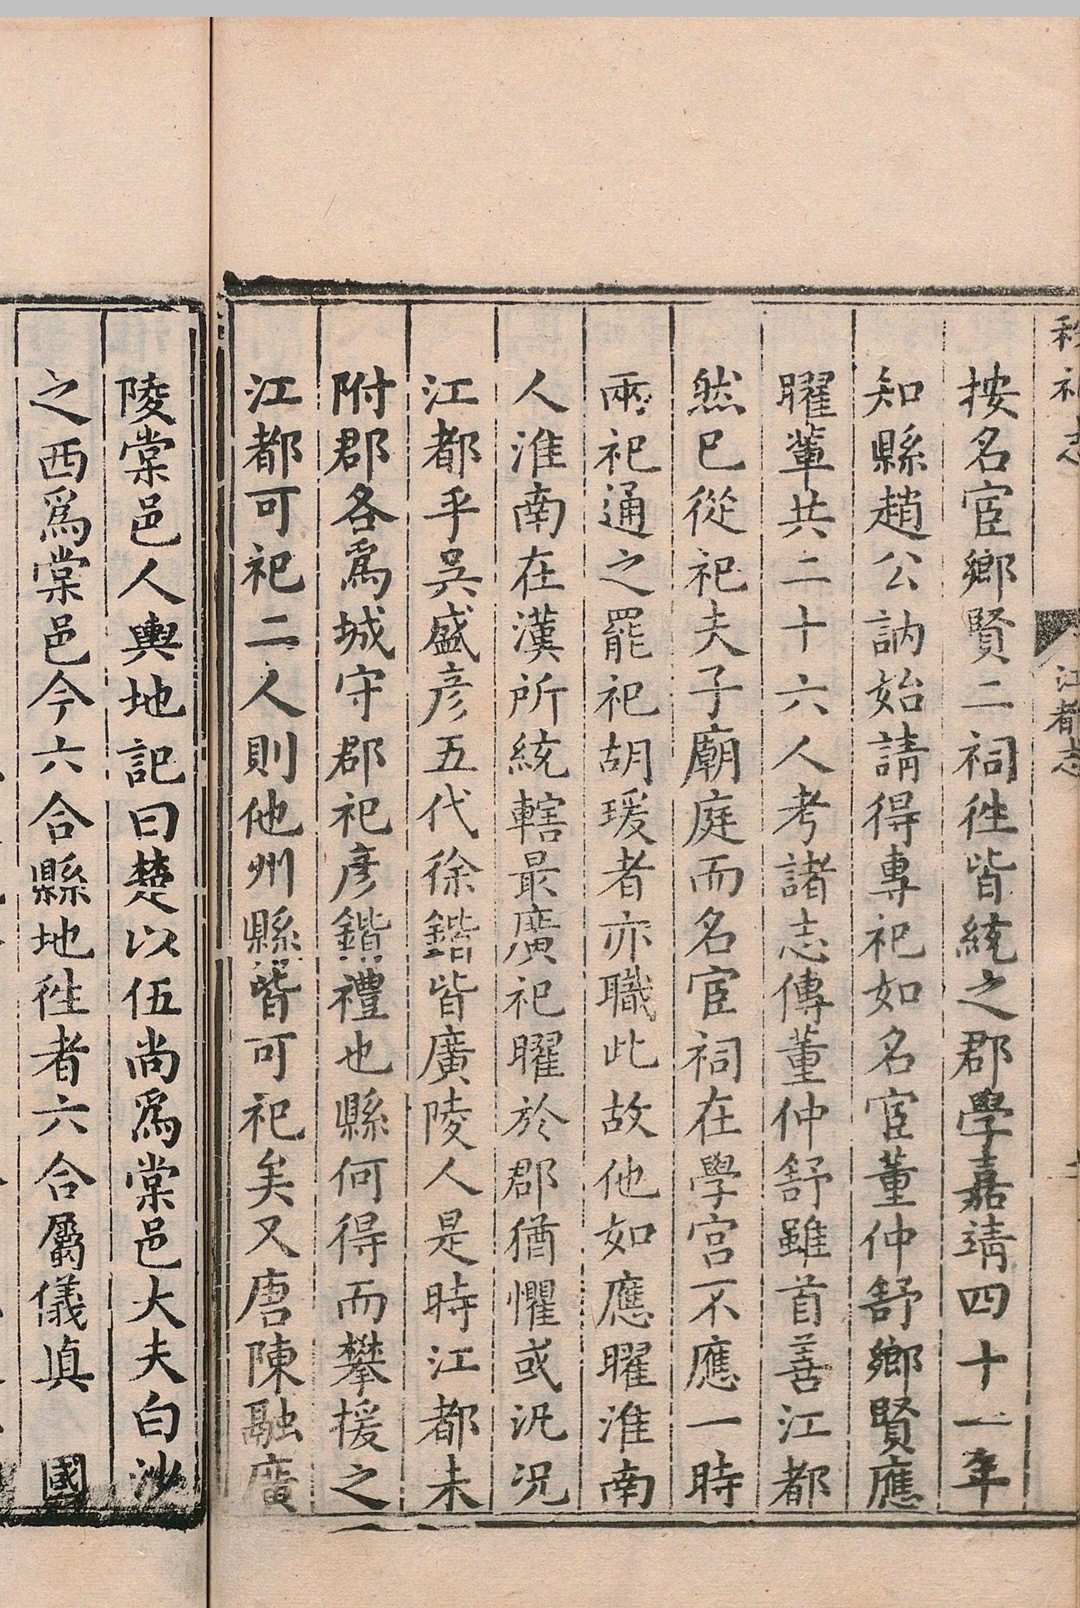 秩祀志 江都志
按名宦鄉賢二祠徃皆統之郡學嘉靖四十一年
知縣趙公訥始請得專祀如名宦董仲舒鄉賢應
曜軰共二十六人考諸志傳董仲舒雖首善江都
然已從祀夫子廟庭而名宦祠在學宫不應一時
兩祀通之罷祀胡瑗者亦職此故他如應曜淮南
人淮南在漢所統轄最廣祀曜於郡猶懼或汎况
江都乎吴盛彦五代徐鍇皆廣陵人是時江都未
附郡各爲城守郡祀彦鍇禮也縣何得而攀援之
江都可祀二人則他州縣皆可祀矣又唐陳融廣
陵棠邑人輿地記曰楚以伍尚爲棠邑大夫白沙
之西爲棠邑今六合縣地徃者六合屬儀真 國